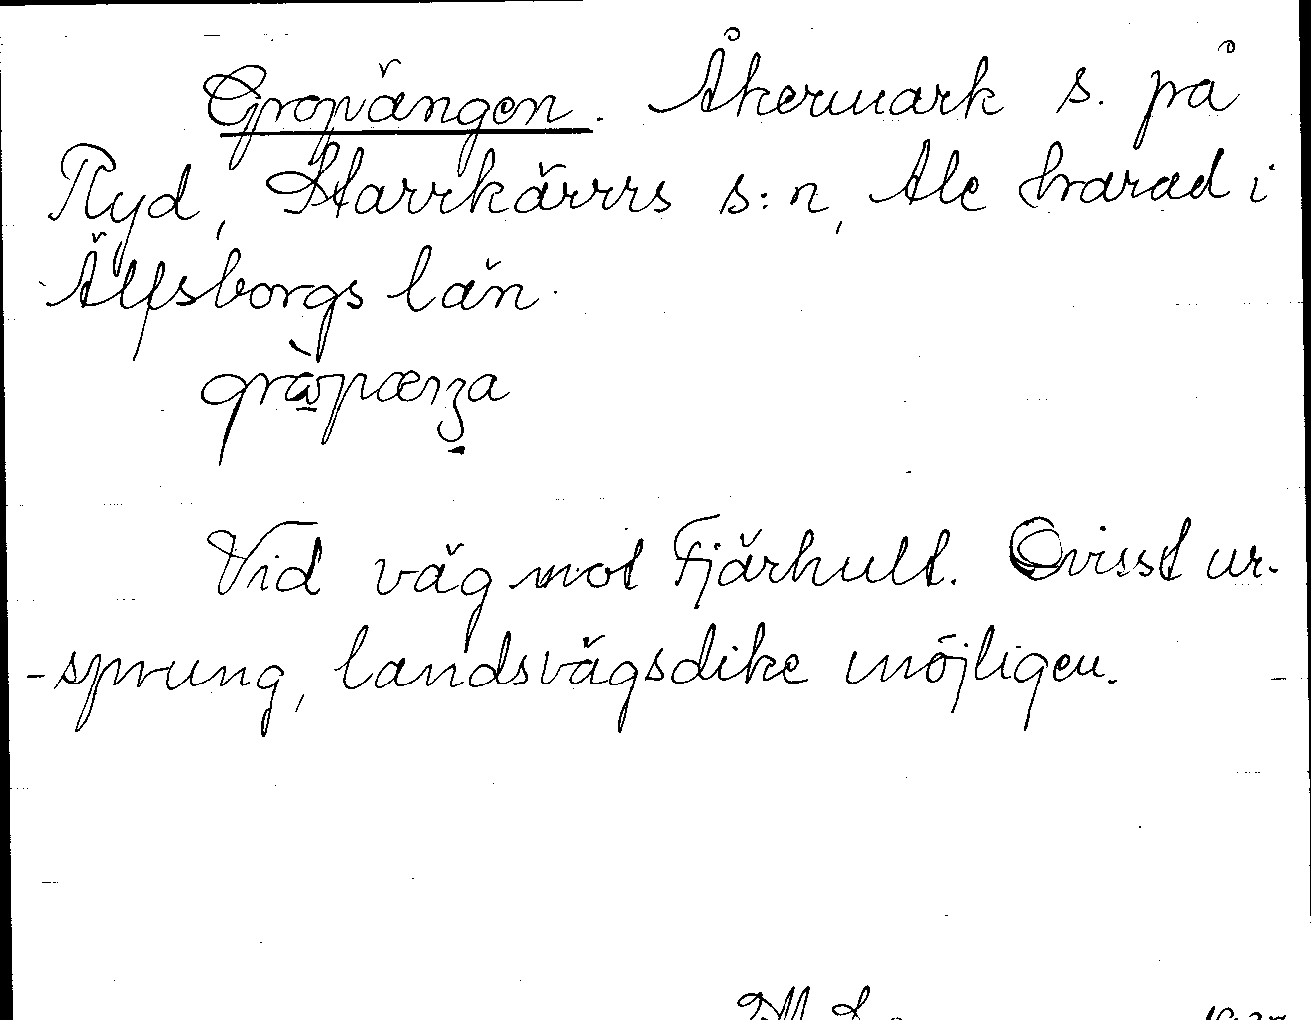 Gropängen. Åkermark s. på
Ryd, Starrkärrs s:n, Ale härad i
Älfsborgs län.
Vid väg mot Fjärhult. Ovisst ur-
-sprung, landsvägsdike möjligen.